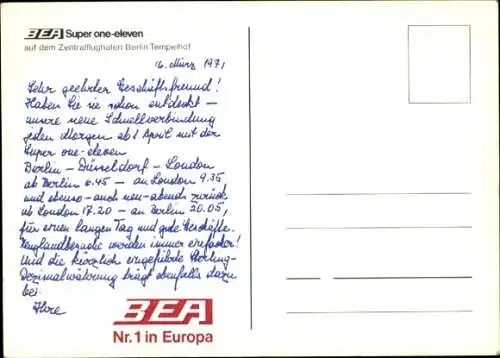 BEA Super one-eleven
auf dem Zentralflughafen Berlin Tempelhof
16. März 1971
Sehr geehrter Geschäftsfreund!
Haben Sie sie schon entdeckt -
unsere neue Schnellverbindung
jeden Morgen ab 1 April mit der
Super one-eleven
Berlin - Düsseldorf - London
ab Berlin 6.45 - an London 9.35
und ebenso - auch neu - abends zurück
ab London 17.20 - an Berlin 20.05,
für einen langen Tag und gute Geschäfte.
Englandbesuche werden immer einfacher!
Und die kürzlich eingeführte Sterling-
Dezimalwährung trägt ebenfalls dazu
bei.
Ihre
BEA
Nr.1 in Europa